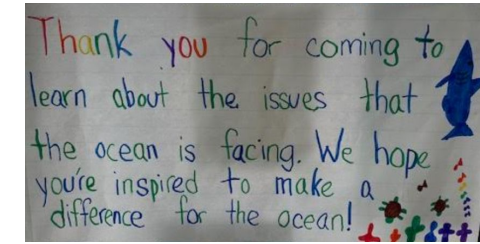 Thank you for coming to
learn about the issues that
the ocean is facing. We hope
you're inspired to make a
difference for the ocean!